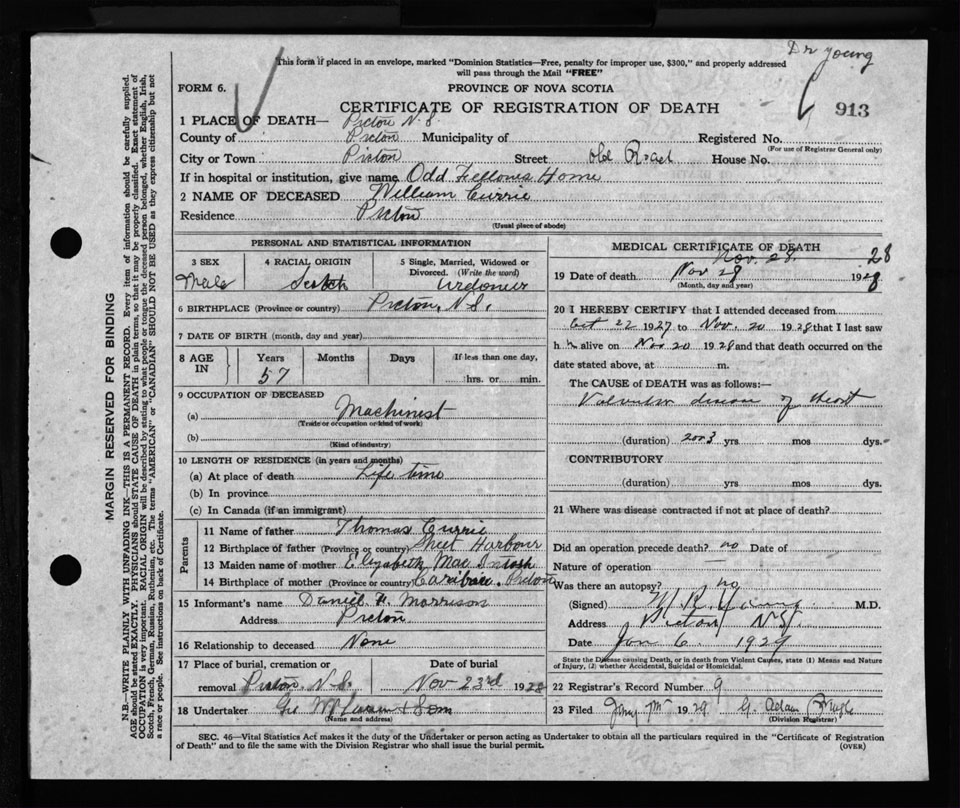 Dr Young
This form if placed in an envelope, marked "Dominion Statistics—Free, penalty for improper use, $300," and properly addressed
will pass through the Mail "FREE"
FORM 6.
PROVINCE OF NOVA SCOTIA
CERTIFICATE OF REGISTRATION OF DEATH
913
1 PLACE OF DEATH— Pictou N.S.
County of Pictou Municipality of Registered No.
(For use of Registrar General only)
City or Town Pictou Street Old Road House No.
If in hospital or institution, give name Odd Fellows Home
2 NAME OF DECEASED William Currie
Residence Pictou
(Usual place of abode)
PERSONAL AND STATISTICAL INFORMATION
3 SEX
Male
4 RACIAL ORIGIN
Scotch
5 Single, Married, Widowed or
Divorced. (Write the word)
Widower
6 BIRTHPLACE (Province or country) Pictou, N.S.
7 DATE OF BIRTH (month, day and year)
8 AGE
IN
Years
57
Months
Days
If less than one day,
hrs. or min.
9 OCCUPATION OF DECEASED
(a) Machinist
(Trade or occupation or kind of work)
(b)
(Kind of industry)
10 LENGTH OF RESIDENCE (in years and months)
(a) At place of death Life time
(b) In province
(c) In Canada (if an immigrant)
Parents
11 Name of father Thomas Currie
12 Birthplace of father (Province or country) Sheet Harbour
13 Maiden name of mother Elizabeth MacIntosh
14 Birthplace of mother (Province or country) Caribou, Pictou
15 Informant's name Daniel H. Morrison
Address Pictou
16 Relationship to deceased None
17 Place of burial, cremation or
removal Pictou, N.S.
Date of burial
Nov 23rd 1928
18 Undertaker Geo & Son
(Name and address)
MEDICAL CERTIFICATE OF DEATH
Nov. 28. 28
19 Date of death Nov 28 1928
(Month, day and year)
20 I HEREBY CERTIFY that I attended deceased from
Oct 22 1927 to Nov. 20 1928 that I last saw
h alive on Nov 20 1928 and that death occurred on the
date stated above, at m.
The CAUSE of DEATH was as follows:—
Valvular disease of Heart
(duration) 2 or 3 yrs mos dys.
CONTRIBUTORY
(duration) yrs. mos dys.
21 Where was disease contracted if not at place of death?
Did an operation precede death? no Date of
Nature of operation
Was there an autopsy? no
(Signed) Young M.D.
Address Pictou N.S.
Date Jan 6 1929
State the Disease causing Death, or in death from Violent Causes, state (1) Means and Nature
of Injury, (2) whether Accidental, Suicidal or Homicidal.
22 Registrar's Record Number 9
23 Filed 1929 G.
(Division Registrar)
SEC. 46—Vital Statistics Act makes it the duty of the Undertaker or person acting as Undertaker to obtain all the particulars required in the "Certificate of Registration
of Death" and to file the same with the Division Registrar who shall issue the burial permit.
(OVER)
MARGIN RESERVED FOR BINDING
N.B.—WRITE PLAINLY WITH UNFADING INK—THIS IS A PERMANENT RECORD. Every item of information should be carefully supplied.
AGE should be stated EXACTLY. PHYSICIANS should STATE CAUSE OF DEATH in plain terms, so that it may be properly classified. Exact statement of
OCCUPATION is very important. RACIAL ORIGIN will be described by stating to what people or tongue the deceased person belonged, whether English, Irish,
Scotch, French, German, Russian, Ruthenian, etc. The terms "AMERICAN" or "CANADIAN" SHOULD NOT BE USED as they express citizenship but not
a race or people. See instructions on back of Certificate.